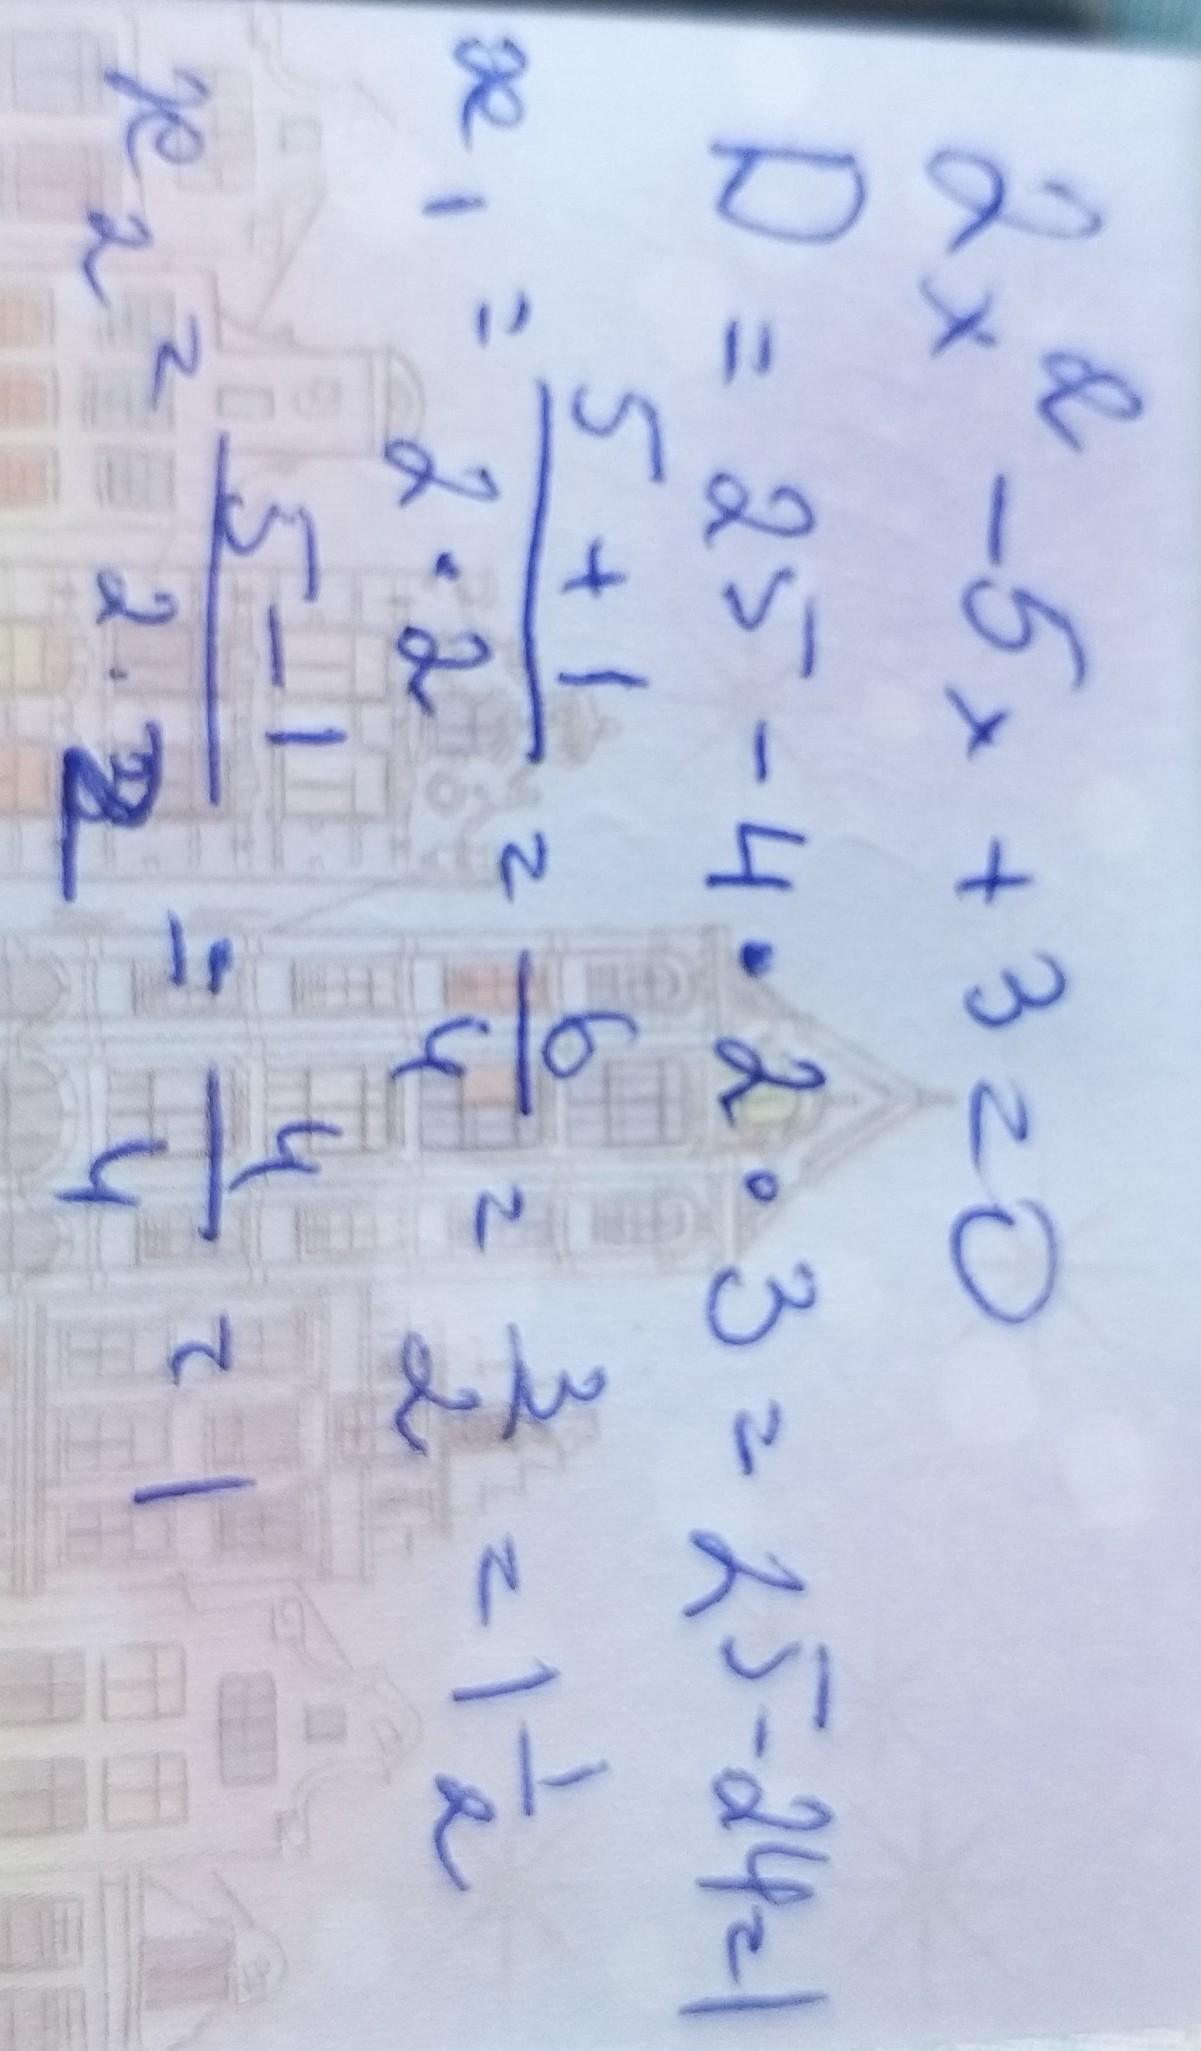 2x² - 5x + 3 = 0
D = 25 - 4 · 2 · 3 = 25 - 24 = 1
x₁ = (5 + 1)/(2 · 2) = 6/4 = 3/2 = 1 1/2
x₂ = (5 - 1)/(2 · 2) = 4/4 = 1